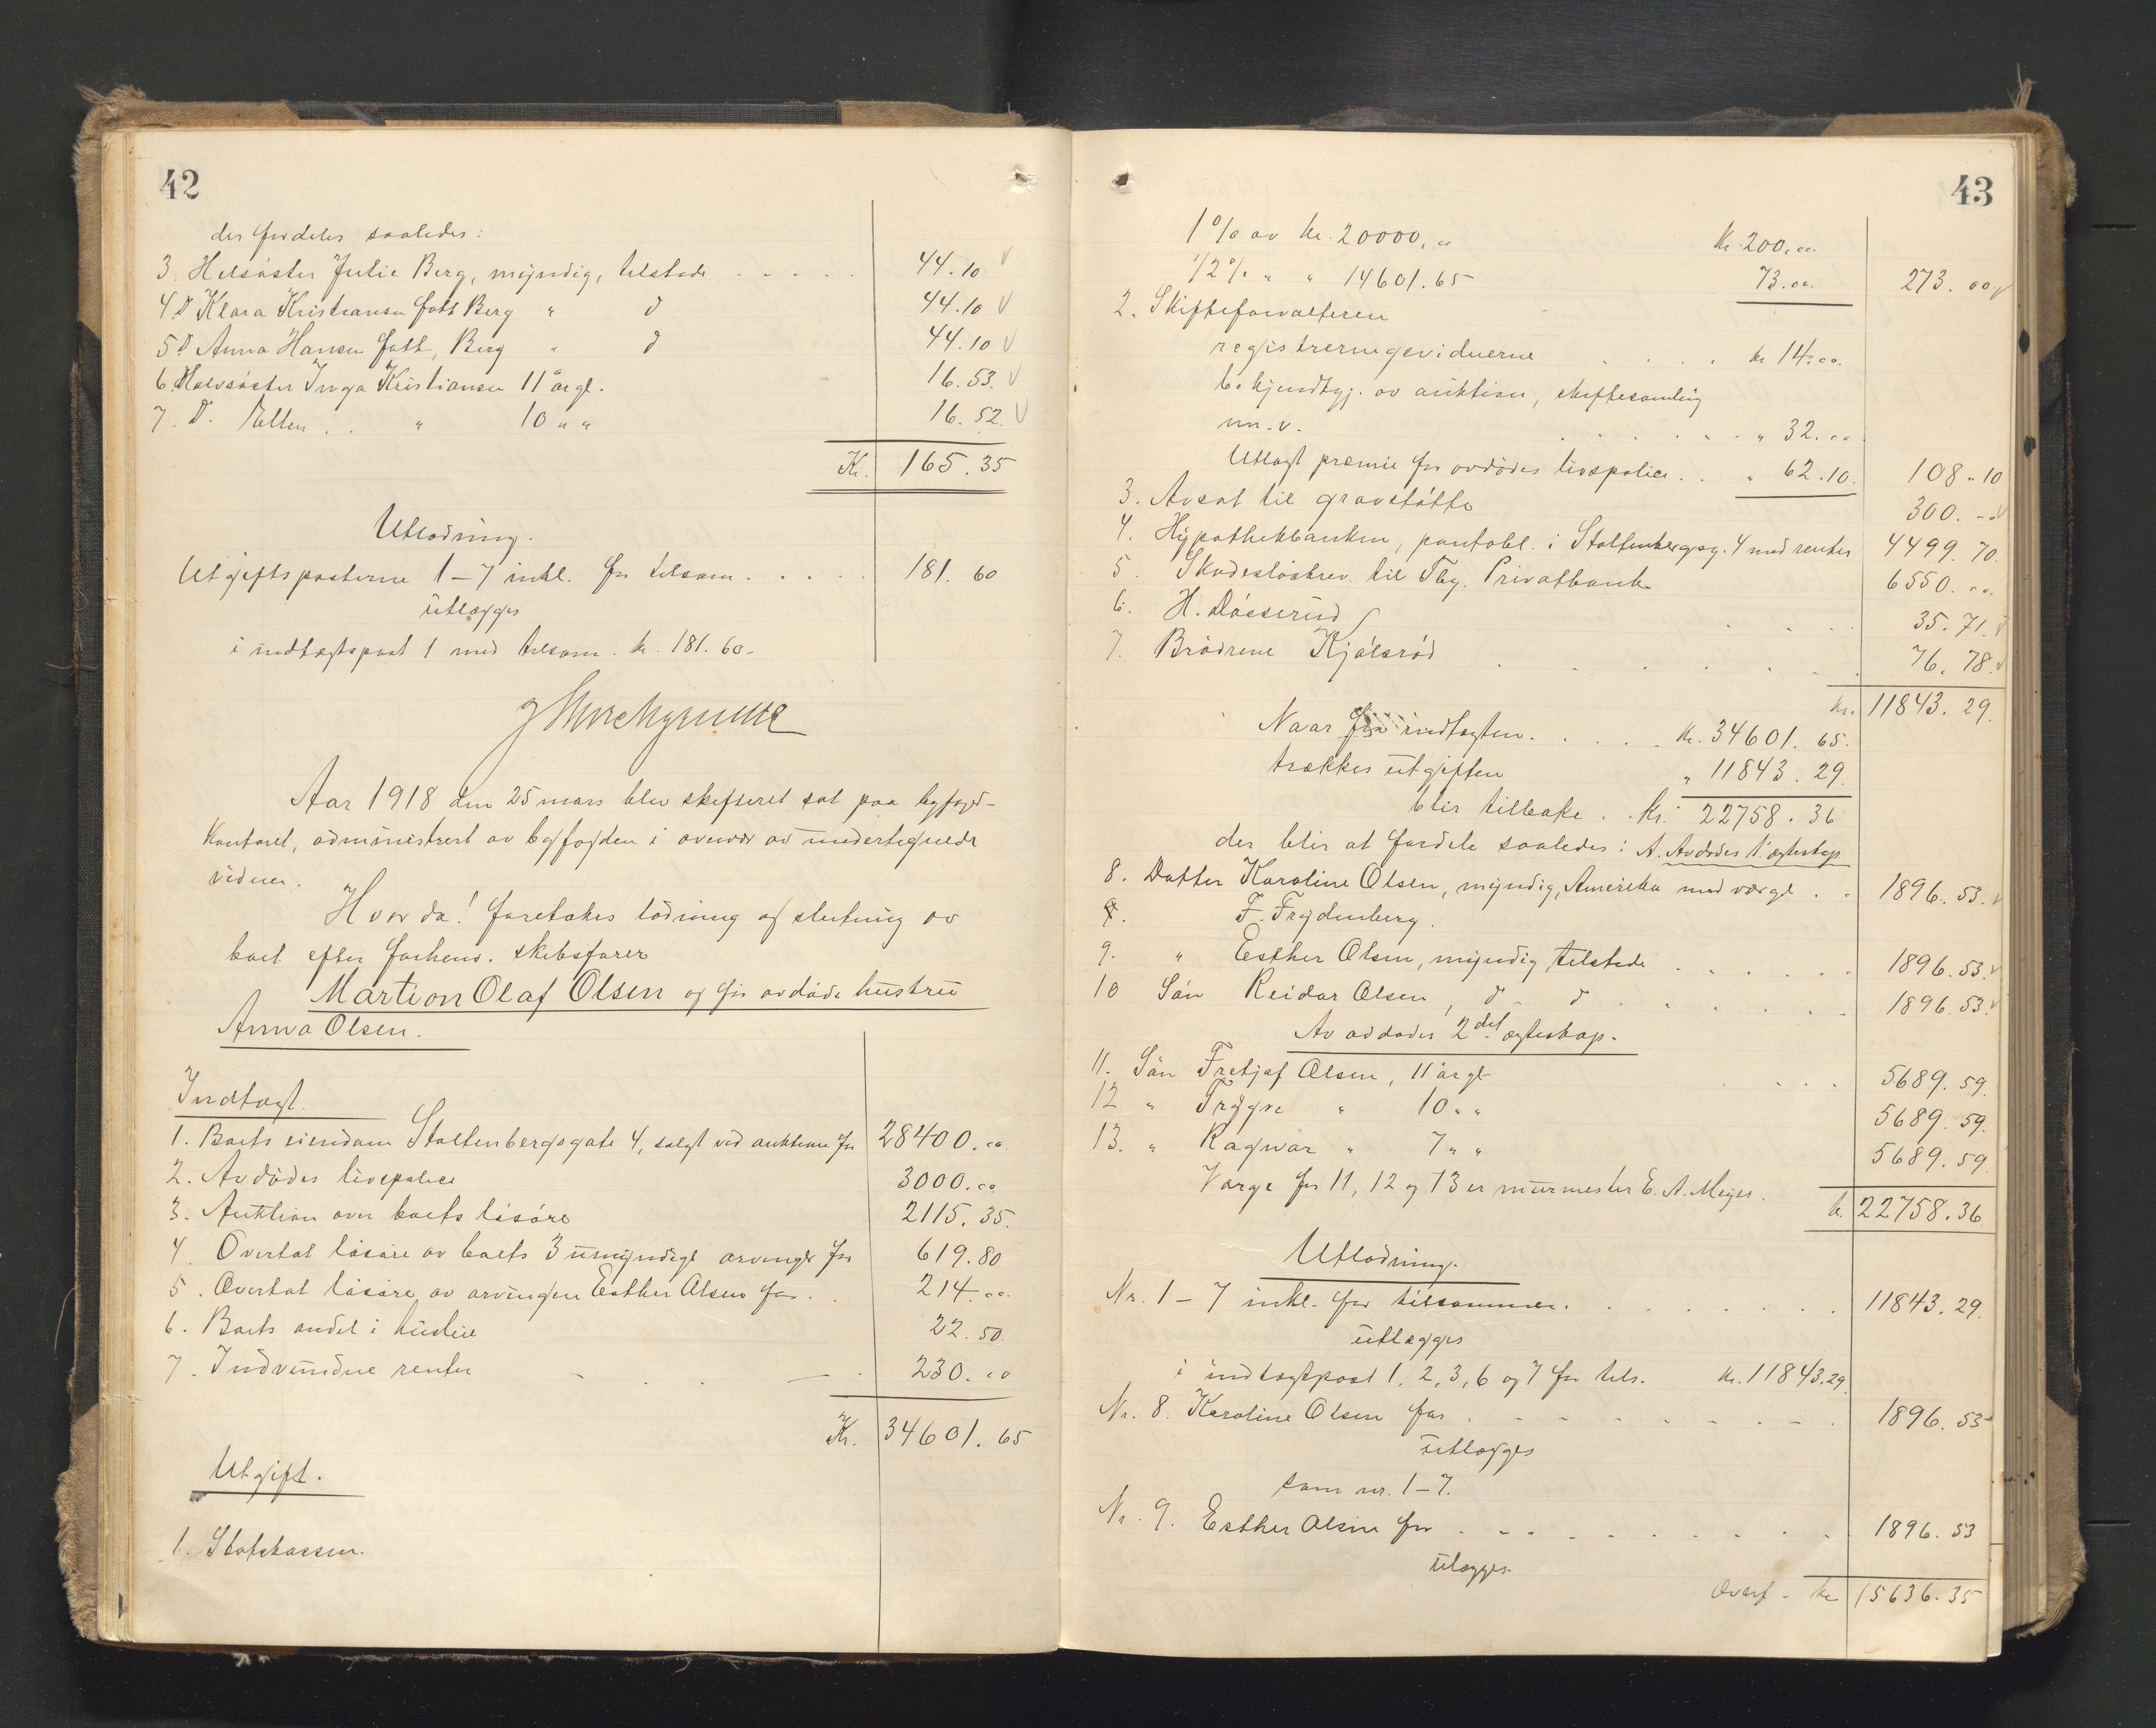 42
der fordeles saaledes:
3. Helsøster Julie Berg, myndig, tilstede . . . . . 44.10
4 D Klara Kristiansen født Berg " d 44.10
5 D Anna Hansen født Berg " d 44.10
6 Halvsøster Inga Kristiansen 11 årgl. 16.53.
7. D. Ellen . . " 10 " " 16.52.
Kr. 165.35
Utlodning.
Utgiftsposterne 1-7 inkl. for tilsam. . . . . 181.60
utlægges
i indtægtspost 1 med tilsam. kr. 181.60.
Aar 1918 den 25 mars blev skifteret sat paa byfoged-
kontoret, administrert av byfogden i overvær av undertegnede
vidner.
Hvor da! foretokes lodning og slutning av
boet efter forhenv. skibsfører
Martion Olaf Olsen og før avdøde hustru
Anna Olsen.
Indtægt.
1. Boets eiendom Stoltenbergsgate 4, solgt ved auktion for 28400.00
2. Avdødes livspolice 3000.00
3. Auktion over boets løsøre 2115.35.
4. Overtat løsøre av boets 3 umyndige arvinger for 619.80
5. Overtat løsøre av arvingen Esther Olsen for . . 214.00.
6. Boets andel i husleie 22.50.
7. Indvundne renter 230.00
Kr. 34601.65
Utgift.
1. Statskassen.
43
1% av kr. 20000,00 kr. 200,00.
1/2% " " 14601.65 73.00. 273.00
2. Skifteforvalteren
registreringsvidnerne . . . . kr 14.00.
bekjendtgj. av auktion, skiftesamling
m.v. . . . . . . " 32.00
Utlagt præmie for avdødes livspolice . . " 62.10. 108.10
3. Avsat til gravstøtte 300.-
4. Hypothekbanken, pantobl. i Stoltenbergsg. 4 med renter 4499.70.
5. Skadesløsbrev til Tbg. Privatbank 6550.00.
6. H. Røsserud . . . . 35.71.
7. Brødrene Kjølsrød . . . . . . 76.78.
kr. 11843.29.
Naar fra indtægten . . . . . kr. 34601.65.
trækkes utgiften " 11843.29.
blir tilbake . . Kr. 22758.36
der blir at fordele saaledes: A. Avdødes 1. egteskap
8. Datter Karoline Olsen, myndig, Amerika med værge . . 1896.53.
F. Frydenberg.
9. " Esther Olsen, myndig, tilstede . . . . . . 1896.53.
10 Søn Reidar Olsen, d d . . . . . 1896.53.
Av avdødes 2det egteskap.
11. Søn Fretjof Olsen, 11 årgl . . . . 5689.59.
12 " Trygve " 10 " " 5689.59.
13. " Ragnar " 7 " " 5689.59
Værge for 11, 12 og 13 er murmester E. A. Meyer.
kr. 22758.36
Utlodning.
Nr. 1-7 inkl. for tilsammen. . . . . . . . 11843.29.
utlægges
i indtægtpost 1, 2, 3, 6 og 7 for tils. kr. 11843.29.
Nr. 8. Karoline Olsen for . . . . . . . . . 1896.53
utlægges
som nr. 1-7.
Nr. 9. Esther Olsen for . . . . . . . . . 1896.53
utlægges
Overf - kr 15636.35